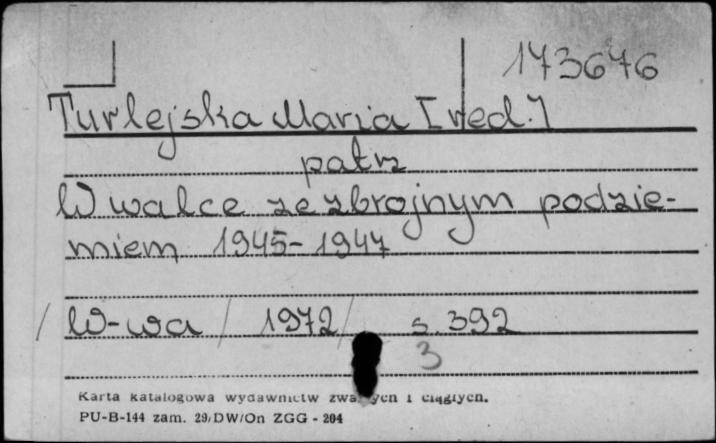 173676
Turlejska Maria [red.]
patrz
W walce ze zbrojnym podzie-
miem 1945-1947
/ W-wa / 1972/ s. 392
3
Karta katalogowa wydawnictw zwartych i ciągłych.
PU-B-144 zam. 29/DW/On ZGG - 204